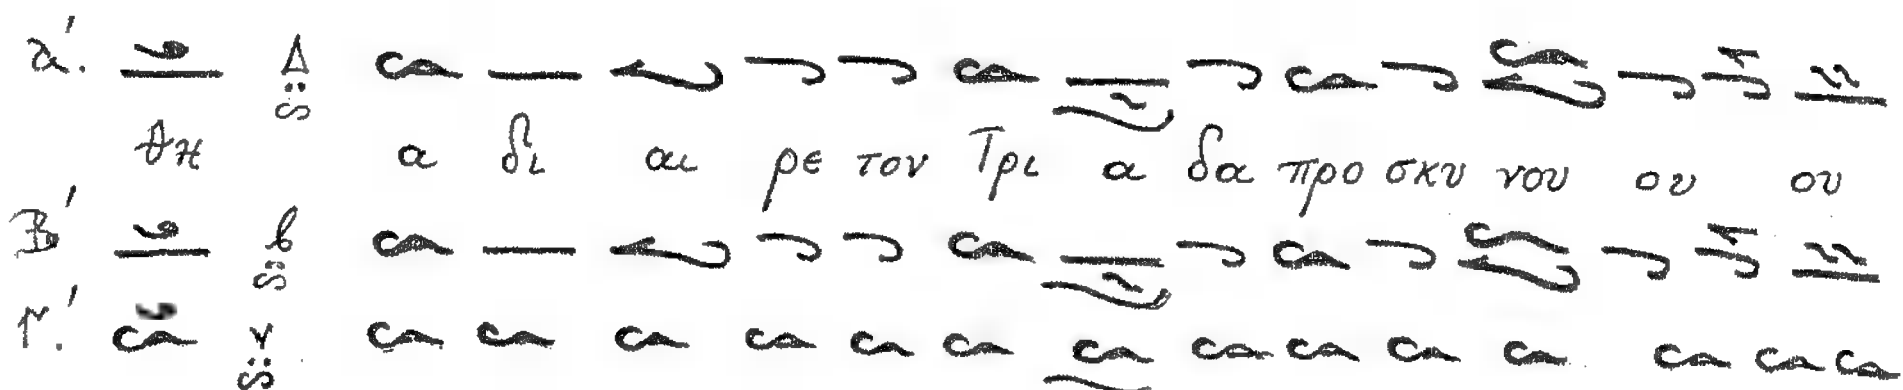 α΄. Δ
θη α δι αι ρε τον Τρι α δα προ σκυ νου ου ου
Β΄
Γ.΄